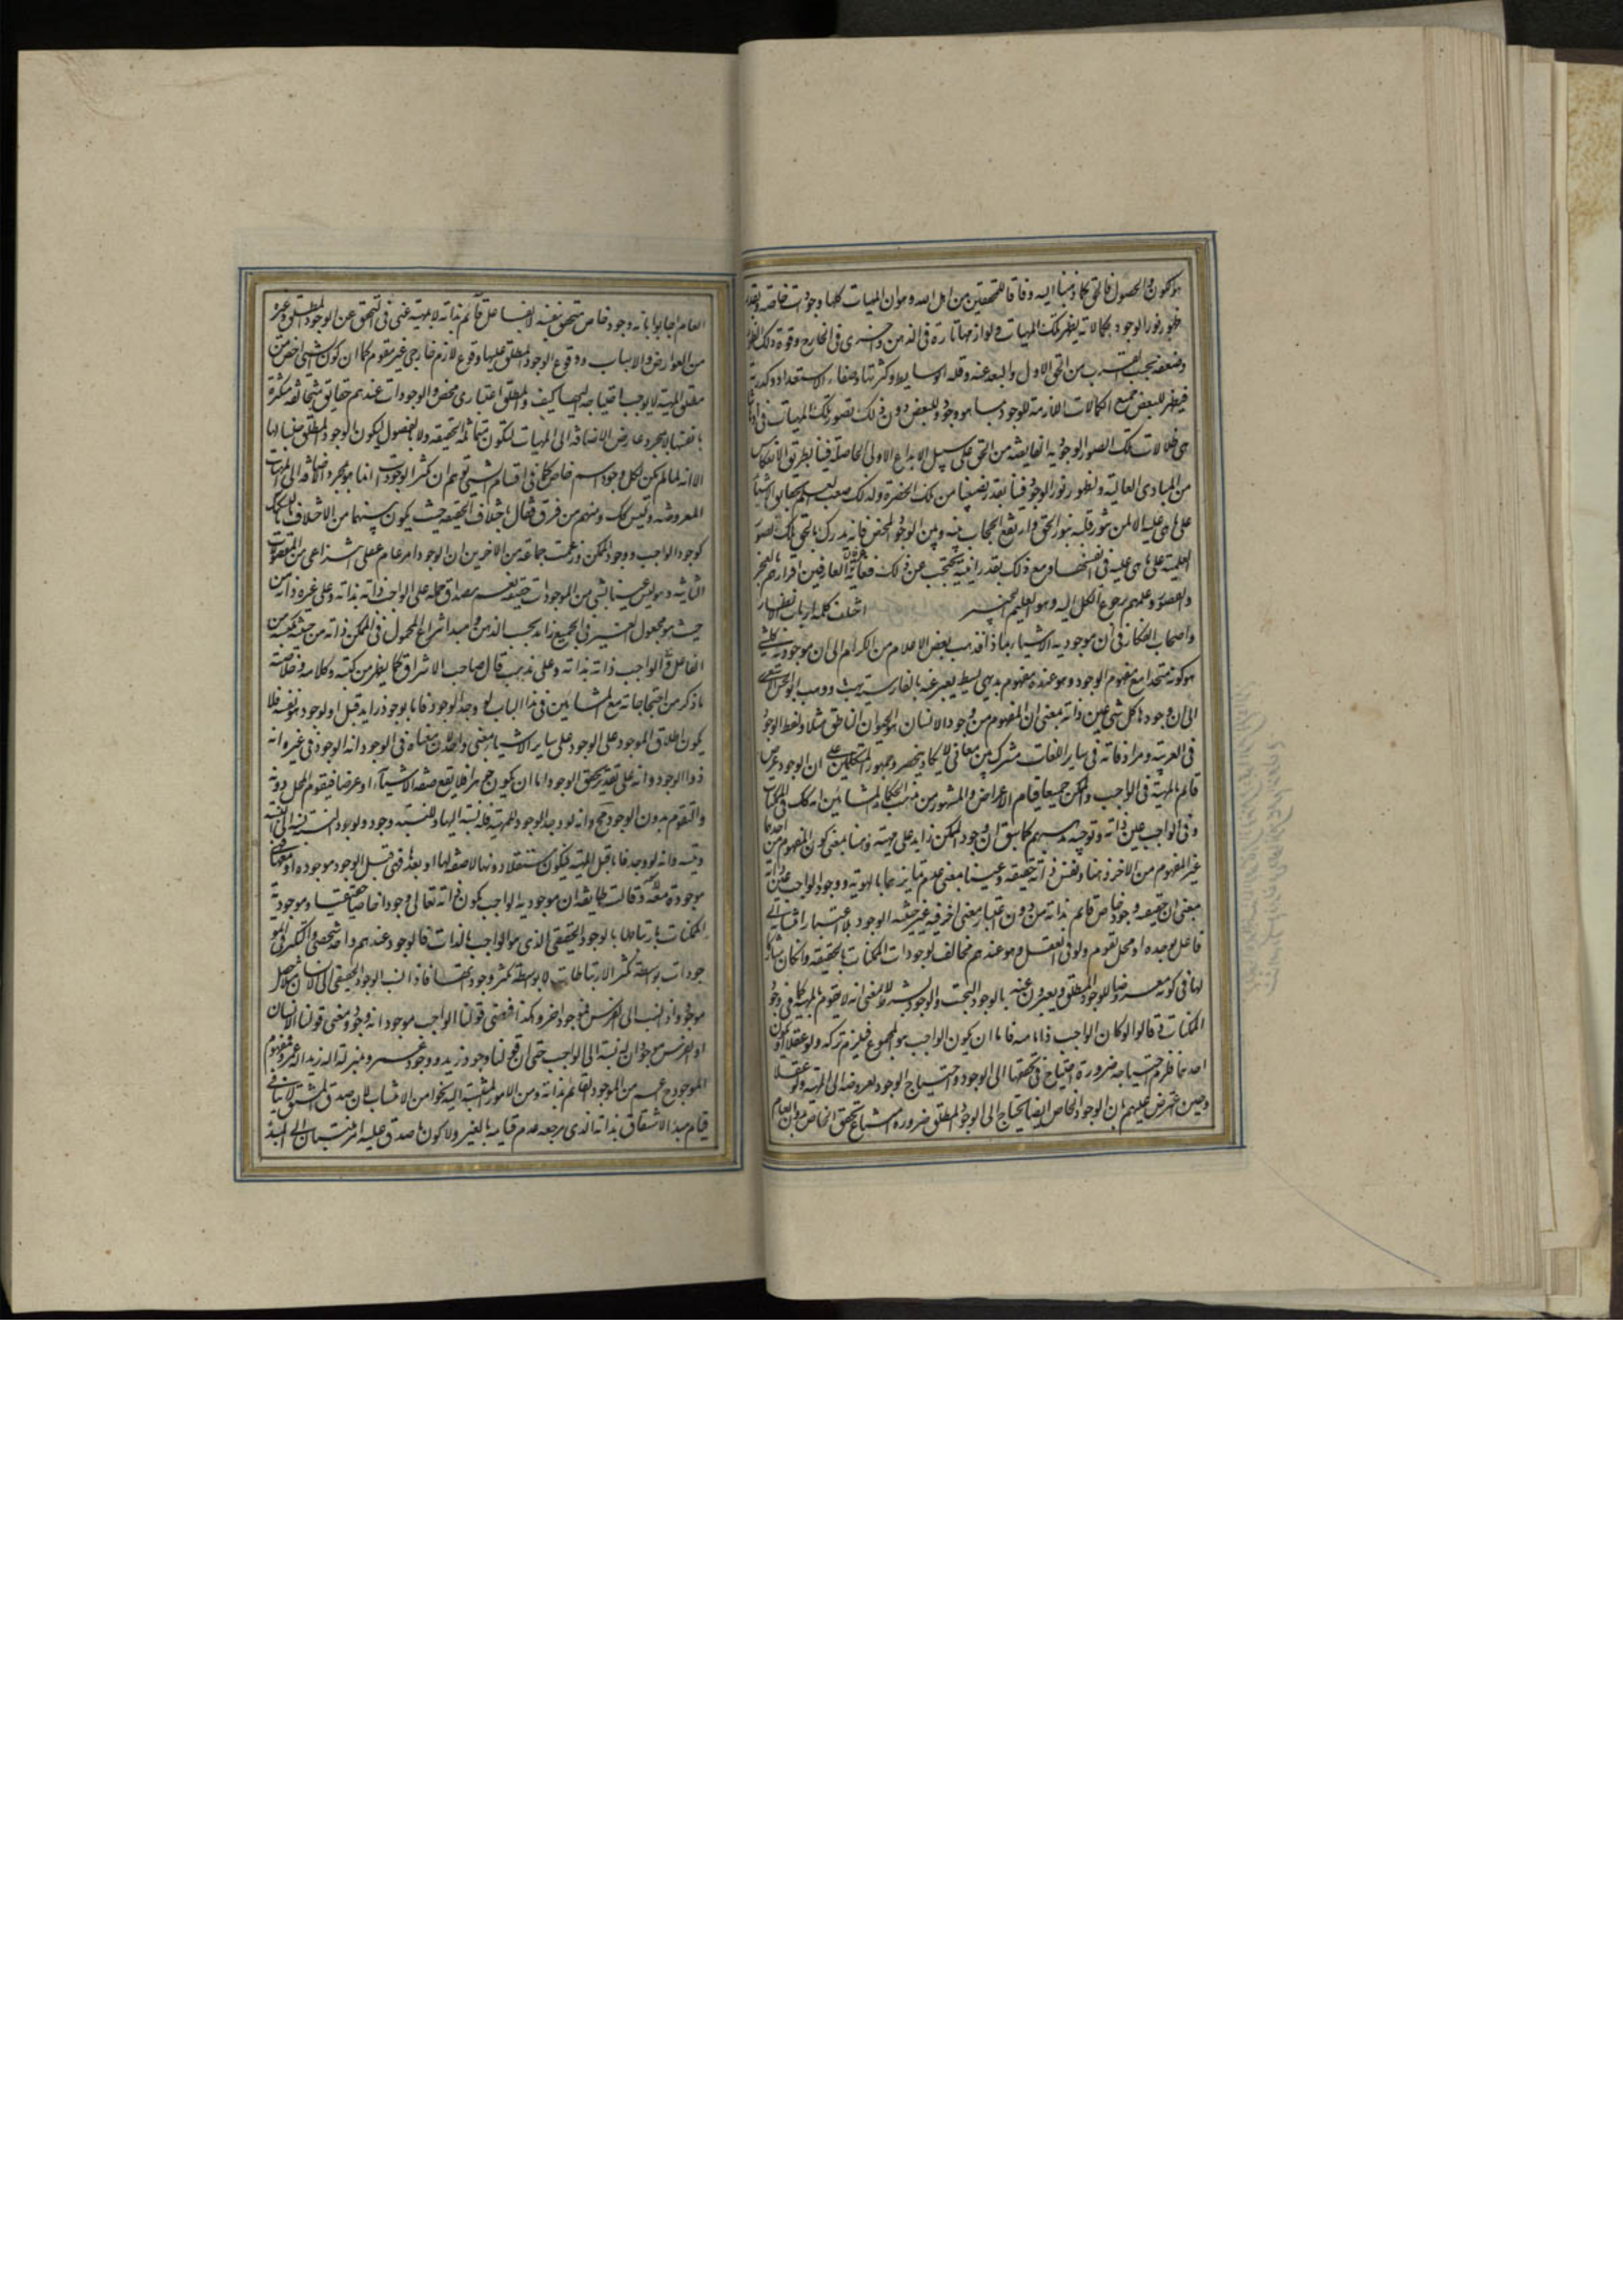 هو الكون والحصول فالحق كما ذهبنا اليه وفاقا للمحققين من اهل الله هو ان المهيات كلها وجودات خاصة وبقدر
ظهور نور الوجود بكمالاته يظهر تلك المهيات ولوازمها تارة فى الذهن واخرى فى الخارج وقوة ذلك الظهور
وضعفه بحسب القرب من الحق الاول والبعد عنه وقلة الوسايط وكثرتها وصفاء الاستعداد وكدرته
فيظهر للبعض جميع الكمالات اللازمة للوجود بما هو وجود وللبعض دون ذلك فصور تلك المهيات فى اذهاننا
هى ظلالات تلك الصور الوجودية الفايضة من الحق على سبيل الابداع الاولى الحاصلة فينا بطريق الانعكاس
من المبادى العالية وبظهور نور الوجود فينا بقدر نصيبنا من تلك الحضرة ولذلك صعب العلم بحقايق الاشياء
على ما هى عليه الا لمن تنور قلبه بنور الحق وارتفع الحجاب بينه وبين الوجود المحض فانه يدرك بالحق تلك الصور
العلمية على ما هى عليه فى انفسها ومع ذلك بقدر انيته يحتجب عن ذلك فغاية عرفان العارفين اقرارهم بالعجز
والقصور وعلمهم برجوع الكل اليه وهو العليم الخبير اختلف كلمة ارباب الانظار
واصحاب الافكار فى ان موجودية الاشياء بماذا فذهب بعض الاعلام من الكرام الى ان موجودية كل شىء
هو كونه متحدا مع مفهوم الوجود وهو عنده مفهوم بديهى بسيط يعبر عنه بالفارسية بهست وذهب ابو الحسن الاشعرى
الى ان وجود كل شىء عين ذاته بمعنى ان المفهوم من وجود الانسان هو الحيوان الناطق مثلا ولفظ الوجود
فى العربية ومرادفاته فى ساير اللغات مشترك بين معان لا يكاد ينحصر وجمهور المتكلمين على ان الوجود عرض
قائم بالمهية فى الواجب والممكن جميعا قيام الاعراض والمشهور من مذهب الحكماء المشائين انه كذلك فى الممكنات
وفى الواجب عين ذاته وتوجيه مذهبهم كما سبق ان وجود الممكن زايد على مهيته ذهنا بمعنى كون المفهوم من احدهما
غير المفهوم من الاخر ذهنا ونفس ذاته حقيقة وعينا بمعنى عدم تمايزهما بالهوية ووجود الواجب عين ذاته
بمعنى ان حقيقته وجود خاص قائم بذاته من دون اعتبار معنى اخر فيه غير حيثية الوجود بلا اعتبار انتسابه الى
فاعل يوجده او محل يقومه ولو فى العقل وهو عندهم مخالف لوجودات الممكنات بالحقيقة وان كان مشاركا
لها فى كونه معروضا للوجود المطلق ويعبرون عنه بالوجود البحت والوجود بشرط لا بمعنى انه لا يقوم بالمهية كما فى وجود
الممكنات قالوا لو كان الواجب ذا مهية فاما ان يكون الواجب هو المجموع فيلزم تركبه ولو عقلا او يكون
احدهما فلزم احتياجه ضرورة احتياج فى تحققها الى الوجود واحتياج الوجود لعروضه الى المهية ولو عقلا
وحين اعترض عليهم بان الوجود الخاص ايضا يحتاج الى الوجود المطلق ضرورة امتناع تحقق الخاص بدون العام
العام اجابوا بانه وجود خاص متحقق بنفسه لا بفاعل قائم بذاته لا بمهية غنى فى التحقق عن الوجود المطلق وغيره
من العوارض والاسباب ووقوع الوجود المطلق عليها وقوع لازم خارجى غير مقوم كما ان كون الشىء اخص من
مطلق المهية لا يوجب احتياجه اليها كيف والمطلق اعتبارى محض والوجودات عندهم حقايق متخالفة متكثرة
بانفسها لا بمجرد عارض الاضافة الى المهيات لتكون متماثلة الحقيقة ولا بالفصول ليكون الوجود المطلق جنسا لها
الا انه لما لم يكن لكل وجود اسم خاص كما فى اقسام الشىء توهم ان تكثر الوجودات انما هو بمجرد الاضافة الى المهيات
المعروضة وليس كذلك ومنهم من فرق فقال باختلاف الحقيقة حيث يكون بينهما من الاختلاف بالتشكيك
كوجود الواجب ووجود الممكن وزعمت جماعة من الاخرين ان الوجود امر عام عقلى انتزاعى من المعقولات
الثانية وهو ليس عينا لشىء من الموجودات حقيقة نعم مصداق حمله على الواجب ذاته بذاته وعلى غيره ذاته من
حيث هو مجعول الغير فى الجميع زايد بحسب الذهن ومبدا انتزاع المحمول فى الممكن ذاته من حيثية مكتسبة من
الفاعل وفى الواجب ذاته بذاته وعلى مذهبه قال صاحب الاشراق كما يظهر من كتبه وكلامه وخلاصة
ما ذكر من احتجاجاته مع المشائين فى هذا الباب لو وجد الوجود فاما بوجود زايد قبل او بوجود هو نفسه فلا
يكون اطلاق الموجود على الوجود على ساير الاشياء بمعنى واحد لان معناه فى الوجود انه الوجود وفى غيره انه
ذو الوجود وانه على تقدير تحقق الوجود اما ان يكون جوهرا فلا يقع صفة الاشياء او عرضا فيقوم المحل دونه
والتقوم بدون الوجود مح وانه لو وجد الوجود للمهية فله نسبة اليها وللنسبة وجود ولوجود النسبة نسبة الى النسبة
وتسلسل وانه لو وجد فاما قبل المهية فيكون مستقلا دونها لا صفة لها او بعدها فهى قبل الوجود موجودة او معها فهى
موجودة معه وقالت طايفة ان موجودية الواجب بكون ذاته تعالى وجودا خاصا حقيقيا وموجودية
الممكنات بارتباطها بالوجود الحقيقى الذى هو الواجب بالذات فالوجود عندهم واحد شخصى والتكثر فى المو
جودات بواسطة تكثر الارتباطات لا بواسطة تكثر وجوداتها فاذا نسب الوجود الحقيقى الى الانسان مثلا حصل
موجود واذا نسب الى الفرس فموجود اخر وهكذا فمعنى قولنا الواجب موجود انه وجود ومعنى قولنا الانسان
او الفرس موجود ان له نسبة الى الواجب حتى ان قولنا وجود زيد ووجود عمرو بمنزلة اله زيد واله عمرو فمفهوم
الموجود اعم من الوجود القائم بذاته ومن الامور المنتسبة اليه نحوا من الانتساب لان صدق المشتق لا ينافى
قيام مبدء الاشتقاق بذاته الذى مرجعه عدم قيامه بالغير ولا كون ما صدق عليه امر منتسب الى المبدء